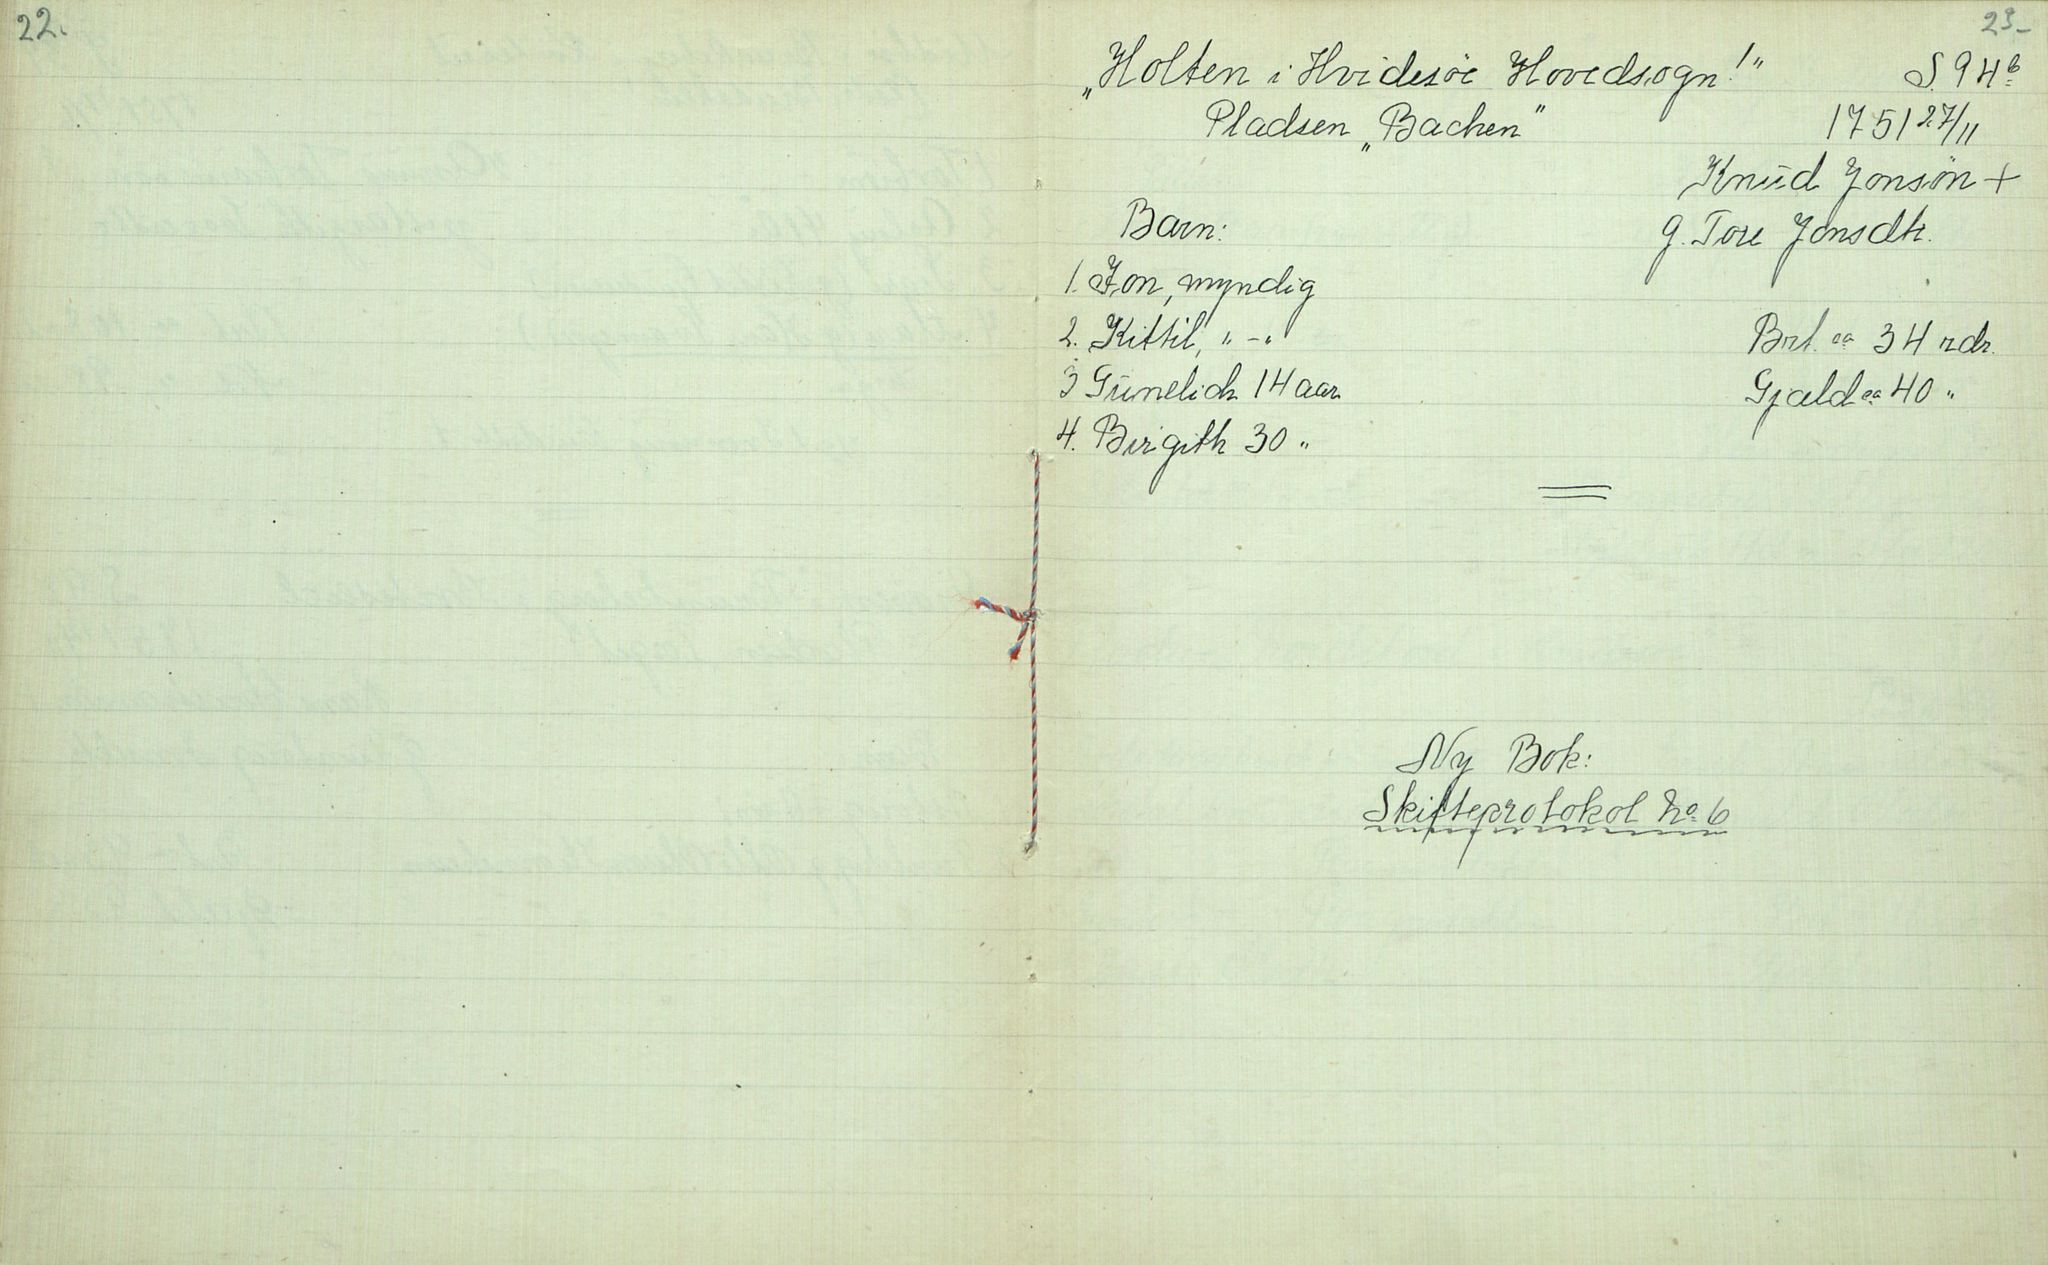 22.
23-
„Holten i Hvidesöe Hovedsogn!" S. 94 b
Pladsen „Bachen" 1751 27/11
Knud Jonsön +
Barn: g. Tore Jonsdtr.
1. Jon, myndig
2. Kittil, " - " Brt. ca 34 rdr.
3 Gunelich 14 aar Gjæld ca 40 "
4. Birgith 30 "
Ny Bok:
Skifteprotokol No 6